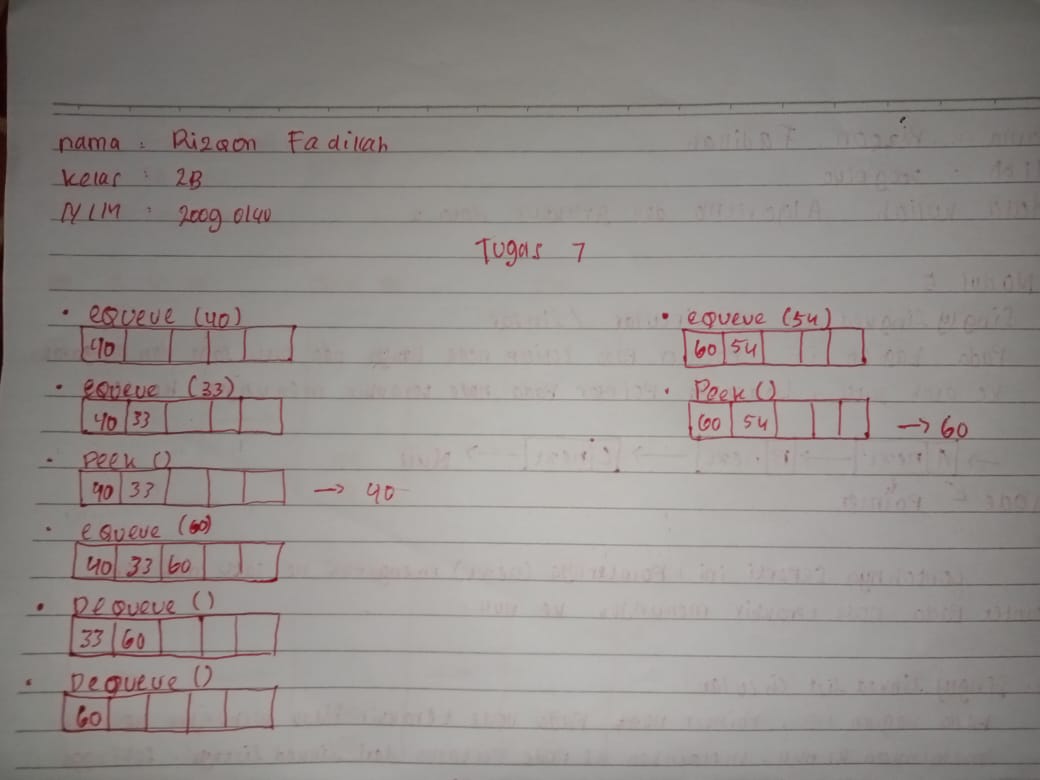 nama : Rizqon Fadikah
Kelas : 2B
NIM : 20090140
Tugas 7
• eQueue (40)
40
• eQueue (33)
40 33
• Peek ()
40 33 → 40
• eQueue (60)
40 33 60
• DeQueue ()
33 60
• DeQueue ()
60
• eQueue (54)
60 54
• Peek ()
60 54 → 60